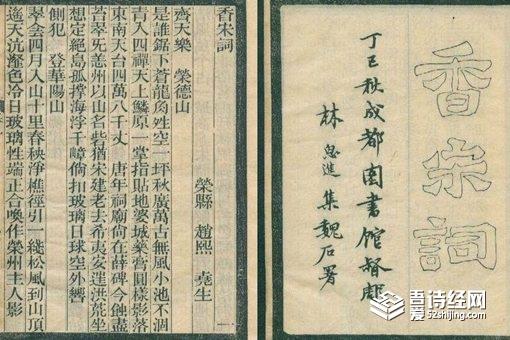 香宋詞
丁巳秋成都圖書館督彫
林思進集魏石署
香宋詞
榮縣 趙熙 堯生
齊天樂 榮德山
是誰鋸下蒼龍角姓空一坪秋廣萬古無風小池不涸
青入四禪天上鱗原一掌指貼地婆城藥膏圓樣影落
東南天台四萬八千丈 唐年祠廟尙在薜碑今蝕盡
苔翠旡恙州以山名砦猶宋建老去希夷安逹洪荒坐
想定絕島孤撐海浮千嶂倘扣玻璃日球空外響
側犯 登華陽山
翠 四月入山十里春秧淨樵徑引一綫松風到山頂
遙天沆瀣色冷日玻璃性端正合喚作榮州主人影
一
吾爱诗经网
52shijing.com